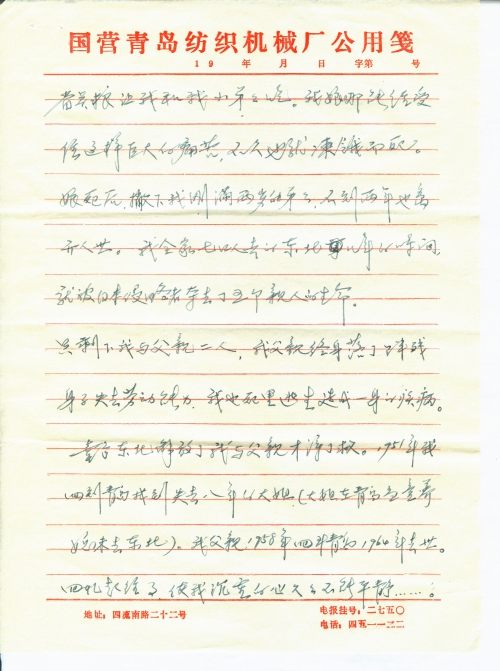 国营青岛纺织机械厂公用笺
19 年 月 日 字第 号
让我和我小弟弟吃。我娘哪能经受
住这样巨大的痛苦,不久也就冻饿而死。
娘死后,撇下我刚满两岁的弟弟,不到两年也离
开人世。我全家七口人去了东北几年的时间,
就被日本侵略者夺去了五个亲人的生命。
只剩下我与父亲二人,我父亲终身落了个残
身子失去劳动能力,我也死里逃生造成一身的疾病。
东北解放了我与父亲才得了救。1951年我
回到青岛找到失去八年的大姐(大姐在青岛
未去东北)。我父亲1958年回青岛1960年去世。
使我沉重的心久久不能平静……。
地址:四流南路二十二号
电报挂号:二七五〇
电话:四五一一二二